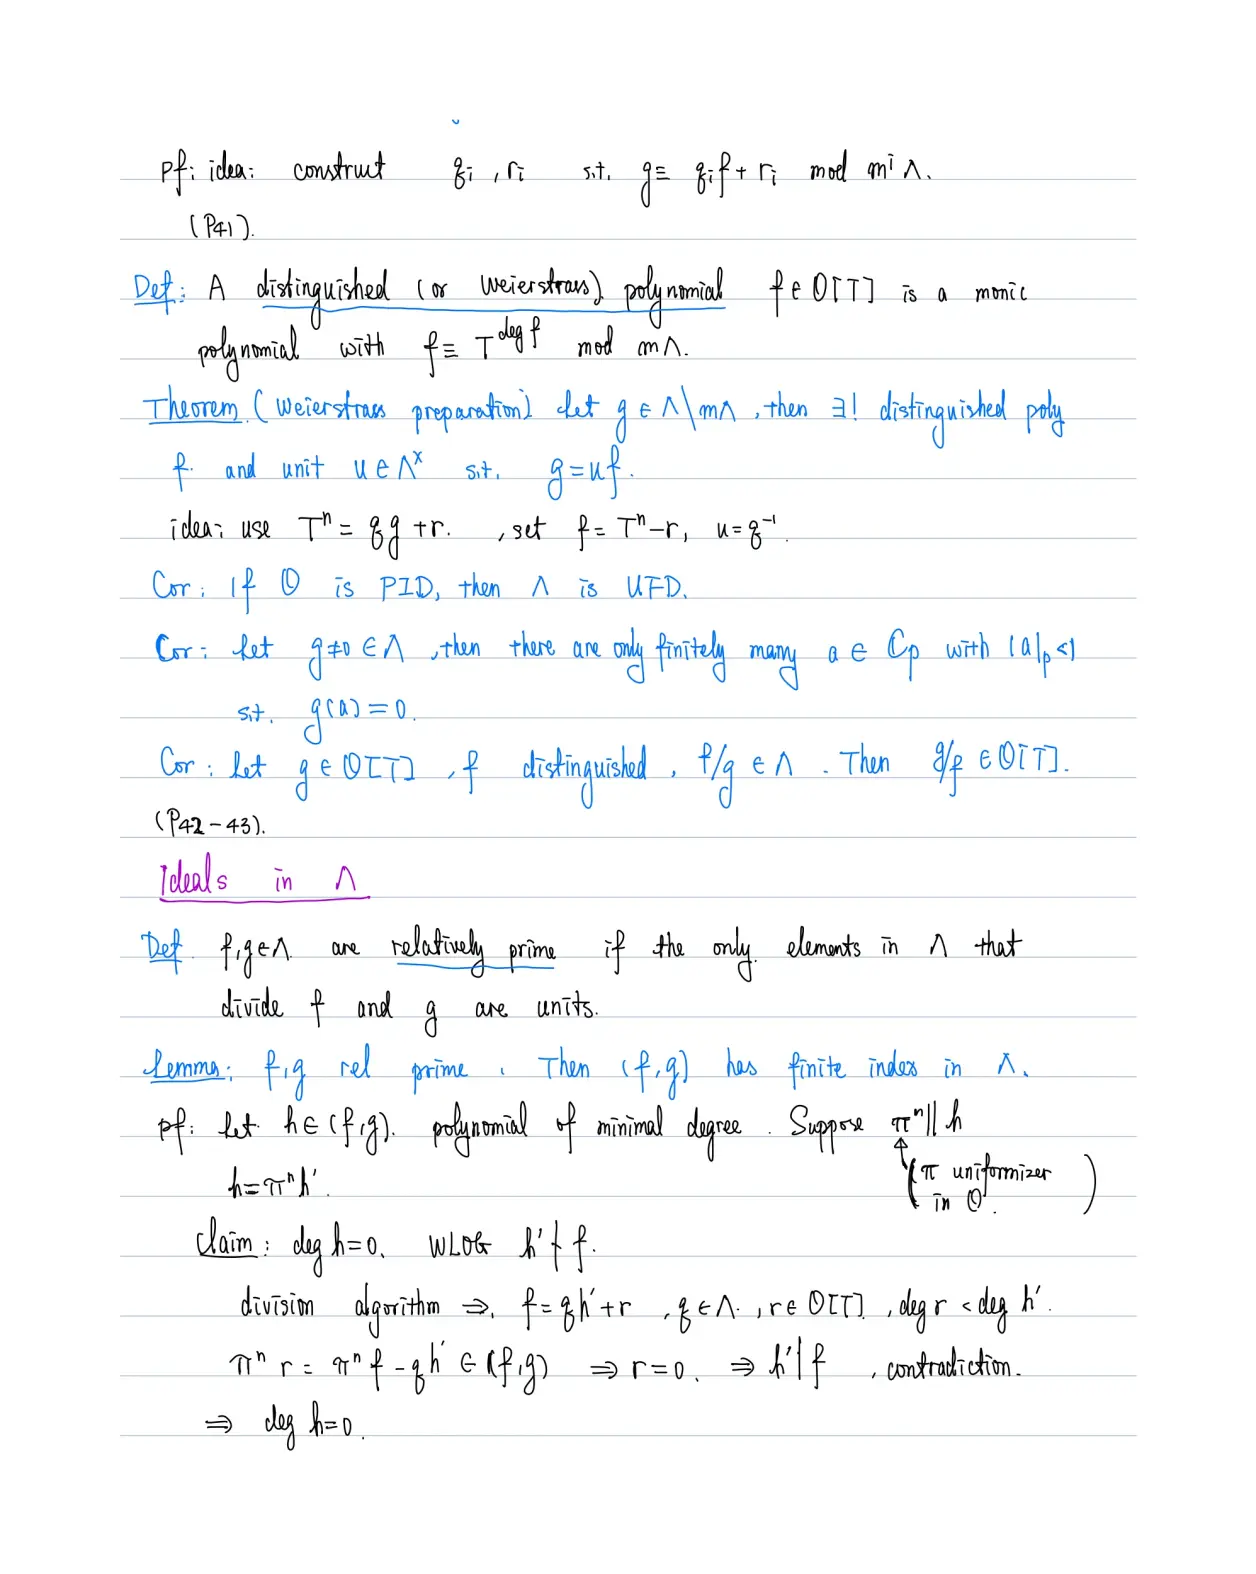 pf: idea: construct q_i, r_i s.t. g ≡ q_i f + r_i mod m^i Λ.
(P41).
Def: A distinguished (or Weierstrass) polynomial f ∈ O[T] is a monic
polynomial with f ≡ T^{deg f} mod mΛ.
Theorem (Weierstrass preparation) Let g ∈ Λ\mΛ, then ∃! distinguished poly
f. and unit u ∈ Λ^× s.t. g = uf.
idea: use T^n = qg + r. , set f = T^n − r, u = q^{-1}.
Cor: If O is PID, then Λ is UFD.
Cor: Let g ≠ 0 ∈ Λ, then there are only finitely many a ∈ C_p with |a|_p < 1
s.t. g(a) = 0.
Cor: Let g ∈ O[T], f distinguished, f/g ∈ Λ. Then g/f ∈ O[T].
(P42-43).
Ideals in Λ
Def. f, g ∈ Λ. are relatively prime if the only. elements in Λ that
divide f and g are units.
Lemma: f, g rel prime. Then (f, g) has finite index in Λ.
pf: Let h ∈ (f, g). polynomial of minimal degree. Suppose π^n || h
h = π^n h'. (π uniformizer
in O.)
Claim: deg h = 0. WLOG h' ∤ f.
division algorithm ⇒. f = qh' + r, q ∈ Λ., r ∈ O[T], deg r < deg h'.
π^n r = π^n f − qh' ∈ (f, g) ⇒ r = 0. ⇒ h' | f, contradiction.
⇒ deg h = 0.